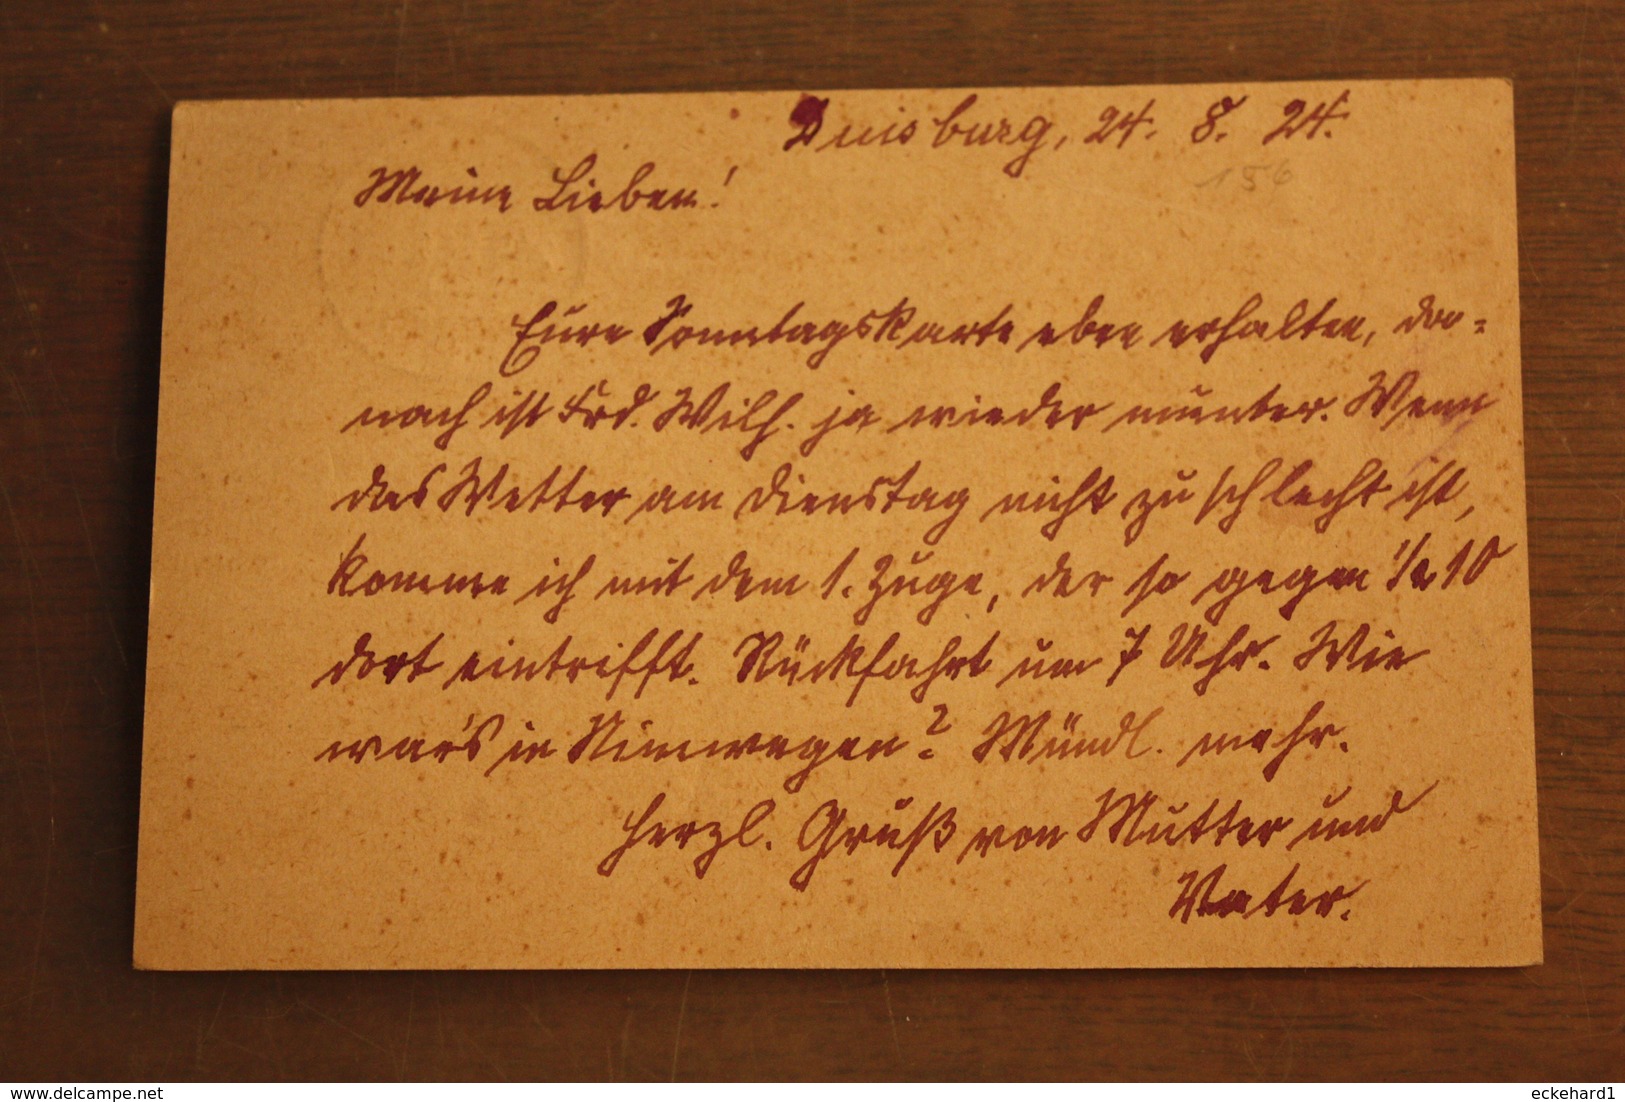 Duisburg, 24. 8. 24.
156
Meine Lieben!
Eure Sonntagskarte eben erhalten, da=
nach ist Frd. Wilh. ja wieder munter. Wenn
das Wetter am Dienstag nicht zu schlecht ist,
komme ich mit dem 1. Zuge, der so gegen 1/2 10
dort eintrifft. Rückfahrt um 7 Uhr. Wie
war's in Nimwegen? Mündl. mehr.
Herzl. Gruß von Mutter und
Vater.
www.delcampe.net
eckehard1